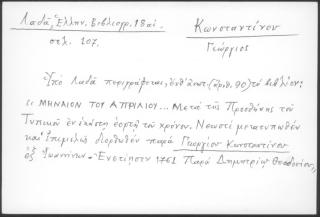 Λαδᾶ, Ἑλλην. Βιβλιογρ. 18 αἰ.
σελ. 107.
Κωνσταντίνου
Γεώργιος
Ὑπὸ Λαδᾶ περιγράφεται, ὑπ' ἀριθ. 90) τὸ βιβλίον:
" ΜΗΝΑΙΟΝ ΤΟΥ ΑΠΡΙΛΙΟΥ... Μετὰ τῆς Προσθήκης τοῦ
Τυπικοῦ ἐν ἑκάστῃ ἑορτῇ τοῦ χρόνου. Νεωστὶ μετατυπωθὲν
καὶ Ἐπιμελῶς διορθωθὲν παρὰ Γεωργίου Κωνσταντίνου
ἐξ Ἰωαννίνων. Ἐνετίησιν 1761 Παρὰ Δημητρίῳ Θεοδοσίου "